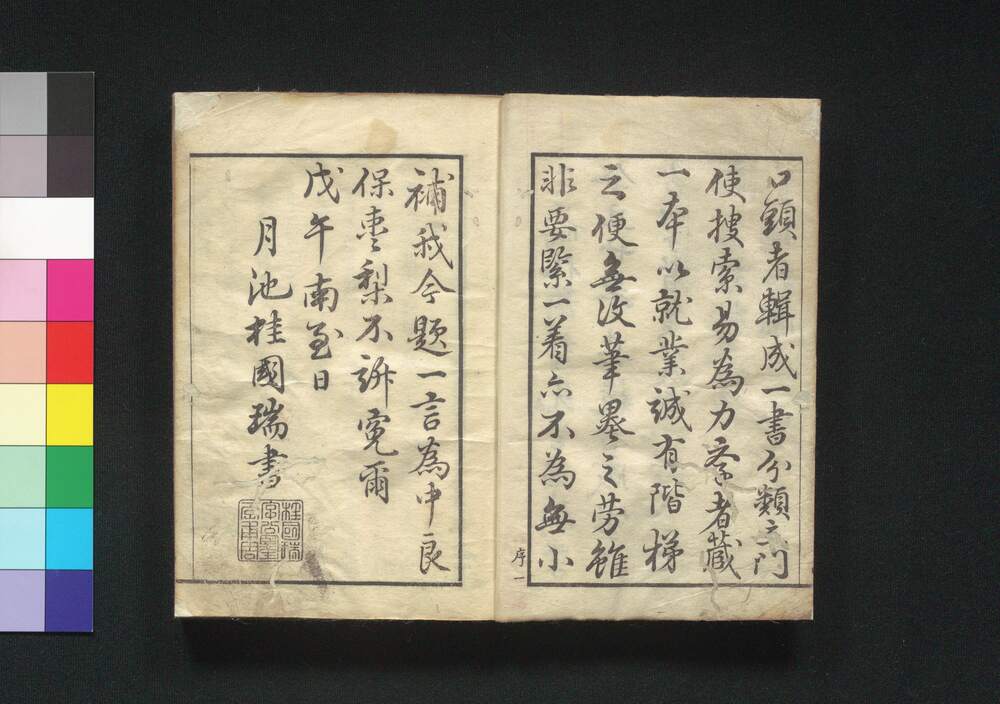 口頭者輯成一書分類立門
使捜索易為力柰者蔵
一本以就業誠有階梯
之便無汝筆墨之労雖
非要緊一着亦不為無小
補我今題一言為中良
保棗梨不訴寃爾
戊午南至日
月池桂國瑞書
序一